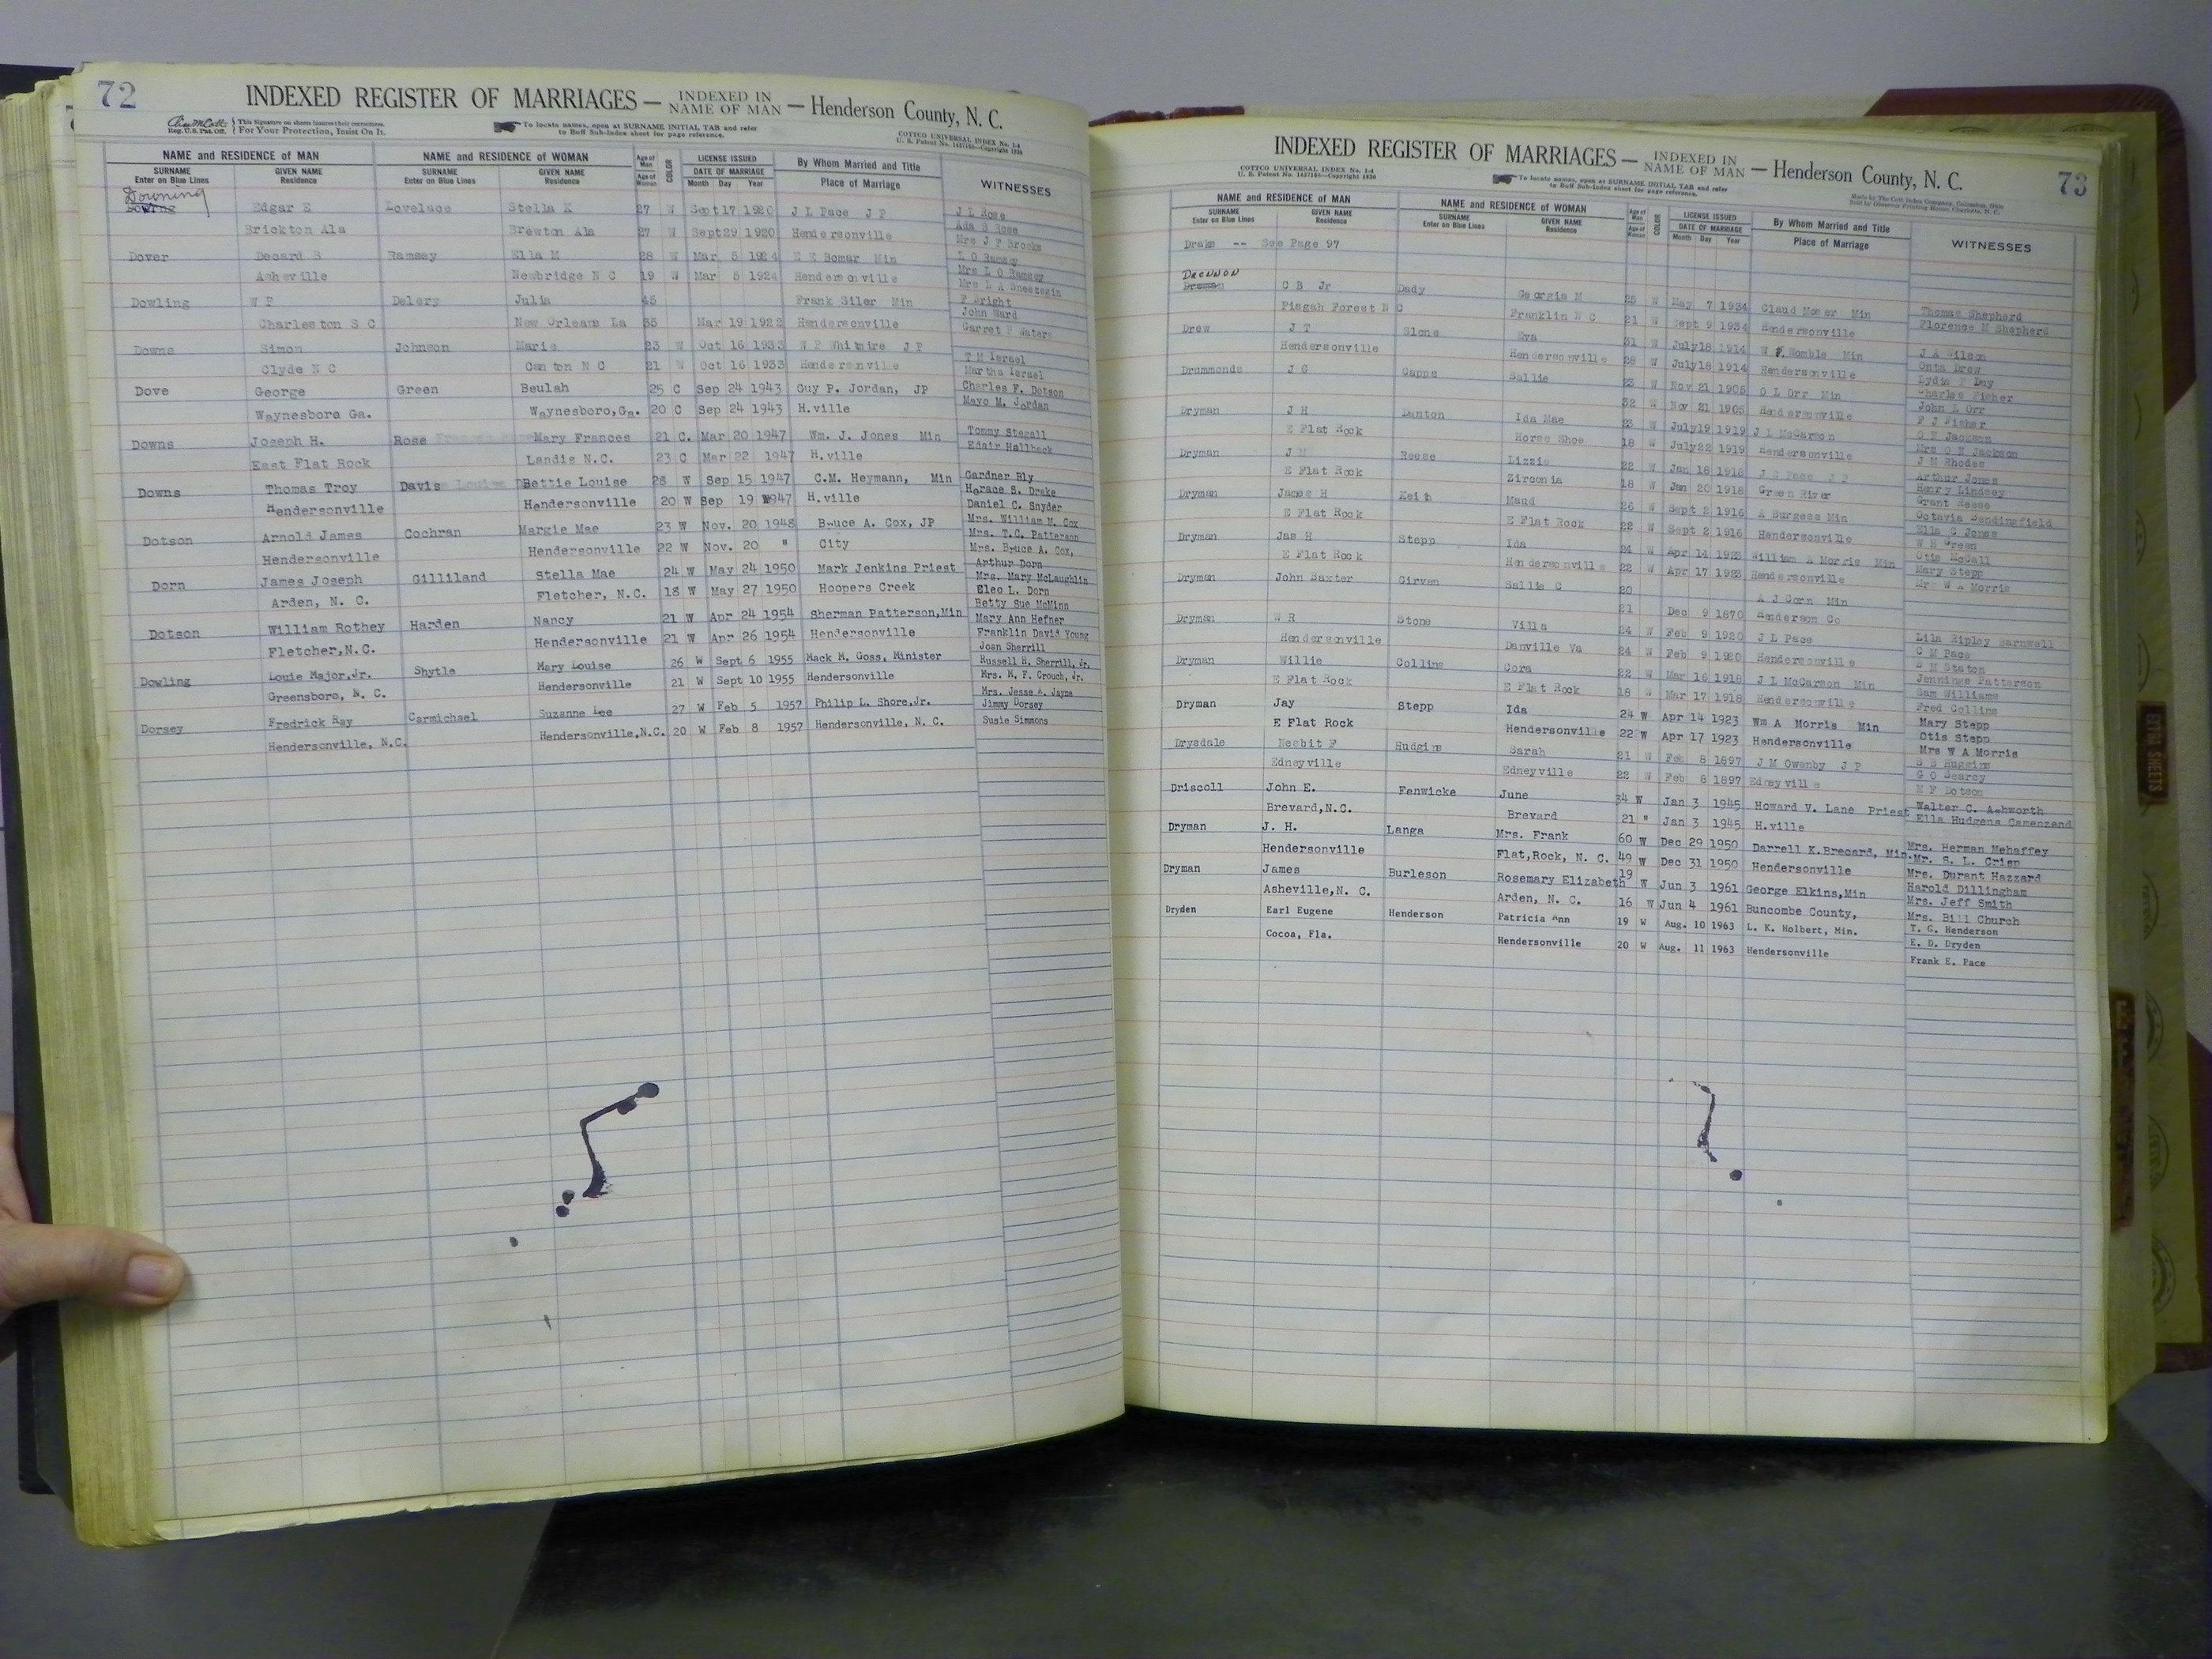 72
INDEXED REGISTER OF MARRIAGES — INDEXED IN NAME OF MAN — Henderson County, N. C.
Reg. U.S. Pat. Off. This Signature on sheets insures their correctness. For Your Protection, Insist On It.
To locate names, open at SURNAME INITIAL TAB and refer to Buff Sub-Index sheet for page reference.
COTTCO UNIVERSAL INDEX No. 1-4
NAME and RESIDENCE of MAN NAME and RESIDENCE of WOMAN Age of Man Age of Woman COLOR LICENSE ISSUED DATE OF MARRIAGE By Whom Married and Title Place of Marriage WITNESSES
SURNAME Enter on Blue Lines GIVEN NAME Residence SURNAME Enter on Blue Lines GIVEN NAME Residence Month Day Year
Downing Edgar E Lovelace Stella K 27 W Sept 17 1920 J L Pace J P J L Rose
Brickton Ala Brewton Ala 27 W Sept 29 1920 Hendersonville Ada B Rose
Mrs J F Brooks
Dover Decard B Ramsey Ella M 28 W Mar 5 1924 E E Bomar Min L O Ramsey
Asheville Newbridge N C 19 W Mar 5 1924 Hendersonville Mrs L O Ramsey
Mrs L A Sneezegin
Dowling W P Delery Julia 45 Frank Siler Min F Bright
Charleston S C New Orleans La 35 Mar 19 1922 Hendersonville John Ward
Garret P Waters
Downs Simon Johnson Marie 23 W Oct 16 1933 W P Whitmire J P
Clyde N C Canton N C 21 W Oct 16 1933 Hendersonville T M Israel
Martha Israel
Dove George Green Beulah 25 C Sep 24 1943 Guy P. Jordan, JP Charles F. Dotson
Waynesboro Ga. Waynesboro, Ga. 20 C Sep 24 1943 H.ville Mayo M. Jordan
Downs Joseph H. Rose Mary Frances 21 C. Mar 20 1947 Wm. J. Jones Min Tommy Stegall
East Flat Rock Landis N.C. 23 C Mar 22 1947 H.ville Edair Hallback
Downs Thomas Troy Davis Bettie Louise 28 W Sep 15 1947 C.M. Heymann, Min Gardner Bly
Hendersonville Hendersonville 20 W Sep 19 1947 H.ville Horace S. Drake
Daniel C. Snyder
Dotson Arnold James Cochran Margie Mae 23 W Nov. 20 1948 Bruce A. Cox, JP Mrs. William M. Cox
Hendersonville Hendersonville 22 W Nov. 20 " City Mrs. T.C. Patterson
Mrs. Bruce A. Cox,
Dorn James Joseph Gilliland Stella Mae 24 W May 24 1950 Mark Jenkins Priest Arthur Dorn
Arden, N. C. Fletcher, N.C. 18 W May 27 1950 Hoopers Creek Mrs. Mary McLaughlin
Eleo L. Dorn
Dotson William Rothey Harden Nancy 21 W Apr 24 1954 Sherman Patterson, Min Betty Sue McMinn
Fletcher, N.C. Hendersonville 21 W Apr 26 1954 Hendersonville Mary Ann Hefner
Franklin David Young
Dowling Louie Major, Jr. Shytle Mary Louise 26 W Sept 6 1955 Mack M. Goss, Minister Joan Sherrill
Greensboro, N. C. Hendersonville 21 W Sept 10 1955 Hendersonville Russell H. Sherrill, Jr.
Mrs. M. F. Crouch, Jr.
Dorsey Fredrick Ray Carmichael Suzanne Lee 27 W Feb 5 1957 Philip L. Shore, Jr. Mrs. Jesse A. Jayne
Hendersonville, N.C. Hendersonville, N.C. 20 W Feb 8 1957 Hendersonville, N. C. Jimmy Dorsey
Susie Simmons
INDEXED REGISTER OF MARRIAGES — INDEXED IN NAME OF MAN — Henderson County, N. C.
73
COTTCO UNIVERSAL INDEX No. 1-4
To locate names, open at SURNAME INITIAL TAB and refer to Buff Sub-Index sheet for page reference.
Made by The Cott Index Company, Columbus, Ohio
Sold by Observer Printing House, Charlotte, N. C.
NAME and RESIDENCE of MAN NAME and RESIDENCE of WOMAN Age of Man Age of Woman COLOR LICENSE ISSUED DATE OF MARRIAGE By Whom Married and Title Place of Marriage WITNESSES
SURNAME Enter on Blue Lines GIVEN NAME Residence SURNAME Enter on Blue Lines GIVEN NAME Residence Month Day Year
Drake -- See Page 97
Drennon C B Jr Dady Georgia M 25 W May 7 1934 Claud Moser Min Thomas Shepherd
Pisgah Forest N C Franklin N C 21 W Sept 9 1934 Hendersonville Florence M Shepherd
Drew J T Slone Eva 31 W July 18 1914 W F Womble Min J A Wilson
Hendersonville Hendersonville 28 W July 18 1914 Hendersonville Onta Drew
Lydia F Day
Drummonds J G Capps Sallie 23 W Nov 21 1905 O L Orr Min Charles Fisher
32 W Nov 21 1905 Hendersonville John L Orr
F J Fisher
Dryman J H Danton Ida Mae 23 W July 19 1919 J L McCarson O N Jackson
E Flat Rock Horse Shoe 18 W July 22 1919 Hendersonville Mrs O N Jackson
J M Rhodes
Dryman J M Reese Lizzie 22 W Jan 18 1918 J S Pace J P Arthur Jones
E Flat Rock Zirconia 18 W Jan 20 1918 Green River Henry Lindsey
Grant Reese
Dryman James H Keith Maud 26 W Sept 2 1916 A Burgess Min Octavia Sendingfield
E Flat Rock E Flat Rock 22 W Sept 2 1916 Hendersonville Ella G Jones
W H Green
Dryman Jas H Stepp Ida 24 W Apr 14 1923 William A Morris Min Otis McCall
E Flat Rock Hendersonville 22 W Apr 17 1923 Hendersonville Mary Stepp
Mrs W A Morris
Dryman John Baxter Girvan Sallie C 20 A J Corn Min
21 Dec 9 1870 Henderson Co
Dryman W R Stone Villa 24 W Feb 9 1920 J L Pace Lila Ripley Barnwell
Hendersonville Danville Va 24 W Feb 9 1920 Hendersonville C M Pace
S M Staton
Dryman Willie Collins Cora 22 W Mar 16 1918 J L McCarson Min Jennings Patterson
E Flat Rock E Flat Rock 18 W Mar 17 1918 Hendersonville Sam Williams
Fred Collins
Dryman Jay Stepp Ida 24 W Apr 14 1923 Wm A Morris Min Mary Stepp
E Flat Rock Hendersonville 22 W Apr 17 1923 Hendersonville Otis Stepp
Mrs W A Morris
Drysdale Nesbit F Hudgins Sarah 21 W Feb 8 1897 J M Owenby J P S S Huggins
Edneyville Edneyville 22 W Feb 8 1897 Edneyville G O Searcy
M F Dotson
Driscoll John E. Fenwicke June 34 W Jan 3 1945 Howard V. Lane Priest Walter C. Ashworth
Brevard, N.C. Brevard 21 " Jan 3 1945 H.ville Ella Hudgens Camenzend
Dryman J. H. Langa Mrs. Frank 60 W Dec 29 1950 Darrell K. Brecard, Min. Mrs. Herman Mehaffey
Hendersonville Flat, Rock, N. C. 49 W Dec 31 1950 Hendersonville Mr. S. L. Crisp
Mrs. Durant Hazzard
Dryman James Burleson Rosemary Elizabeth 19 W Jun 3 1961 George Elkins, Min Harold Dillingham
Asheville, N. C. Arden, N. C. 16 W Jun 4 1961 Buncombe County, Mrs. Jeff Smith
Mrs. Bill Church
Dryden Earl Eugene Henderson Patricia Ann 19 W Aug. 10 1963 L. K. Holbert, Min. T. C. Henderson
Cocoa, Fla. Hendersonville 20 W Aug. 11 1963 Hendersonville E. D. Dryden
Frank E. Pace
EXTRA SHEETS